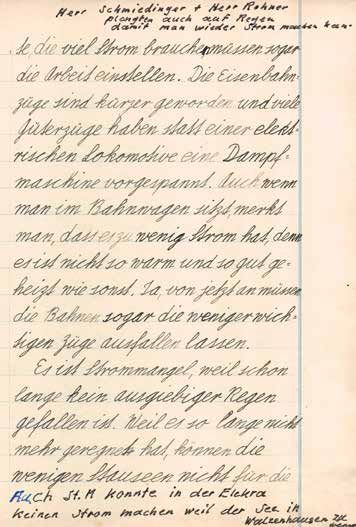 Herr Schmiedinger + Herr Rohner
plangten auch auf Regen
damit man wieder Strom machen kann.
te die viel Strom brauchen müssen sogar
die Arbeit einstellen. Die Eisenbahn-
züge sind kürzer geworden und viele
Güterzüge haben statt einer elekt-
rischen Lokomotive eine Dampf-
maschine vorgespannt. Auch wenn
man im Bahnwagen sitzt, merkt
man, dass es zu wenig Strom hat, denn
es ist nicht so warm und so gut ge-
heizt wie sonst. Ja, von jetzt an müssen
die Bahnen sogar die weniger wich-
tigen Züge ausfallen lassen.
Es ist Strommangel, weil schon
lange kein ausgiebiger Regen
gefallen ist. Weil es so lange nicht
mehr geregnet hat, können die
wenigen Stauseen nicht für die
Auch St. M konnte in der Elektra
keinen Strom machen weil der See in
Walzenhausen zu